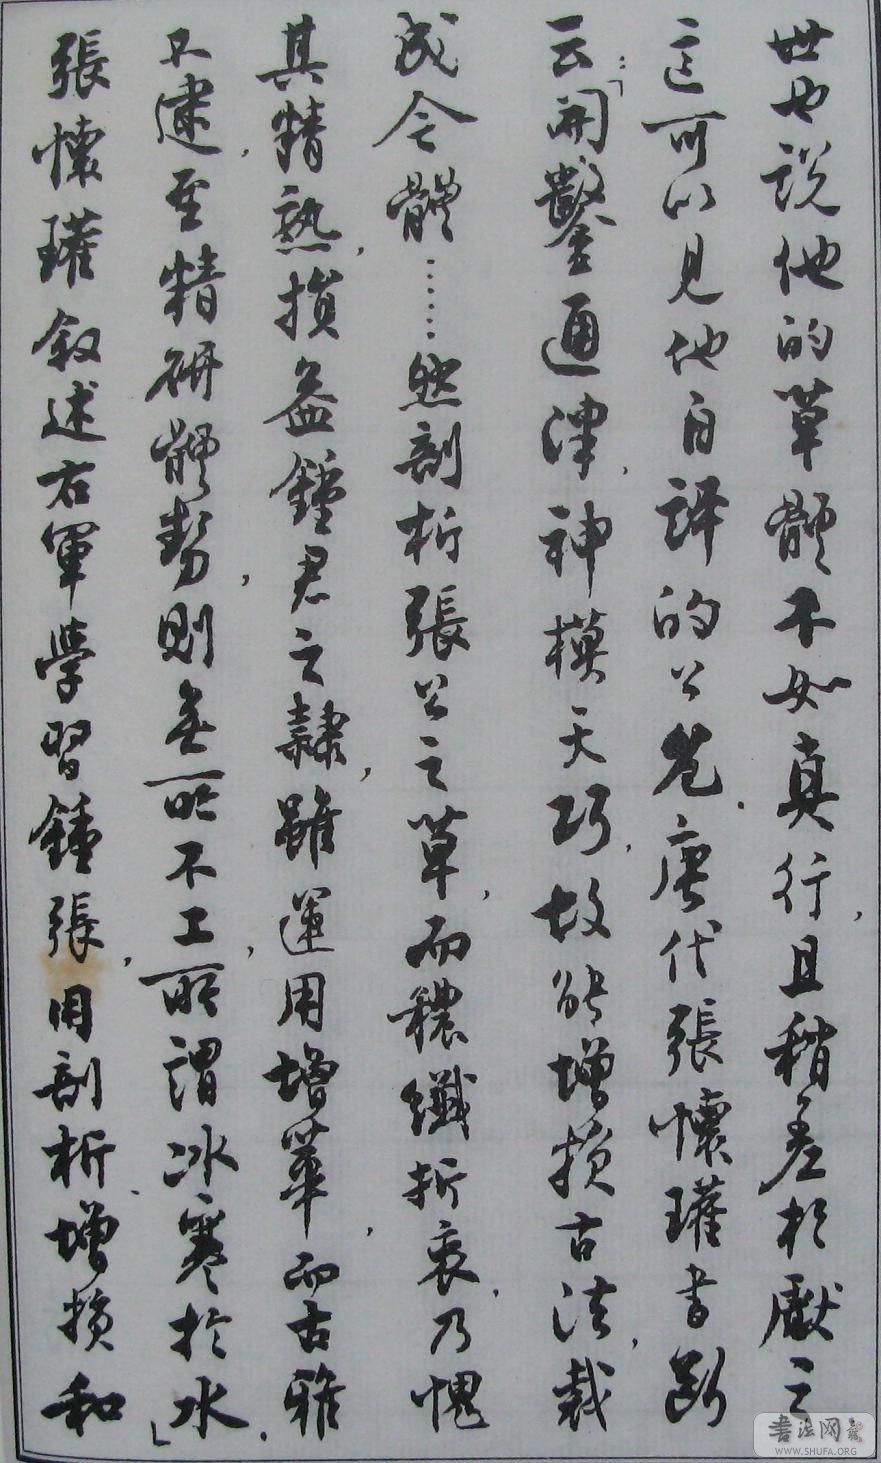 世也說他的草體不如真行，且稍差於獻之
這可以見他自評的公允．唐代張懷瓘書斷
云：「開鑿通津，神模天巧，故能增損古法，裁
成今體……然剖析張公之草，而穠纖折衷，乃愧
其精熟，損益鍾君之隸，雖運用增華，而古雅
不逮，至精研體勢，則無所不工，所謂冰寒於水」．
張懷瓘叙述右軍學習鍾張，用剖析、增損和
書法网
WWW.SHUFA.ORG